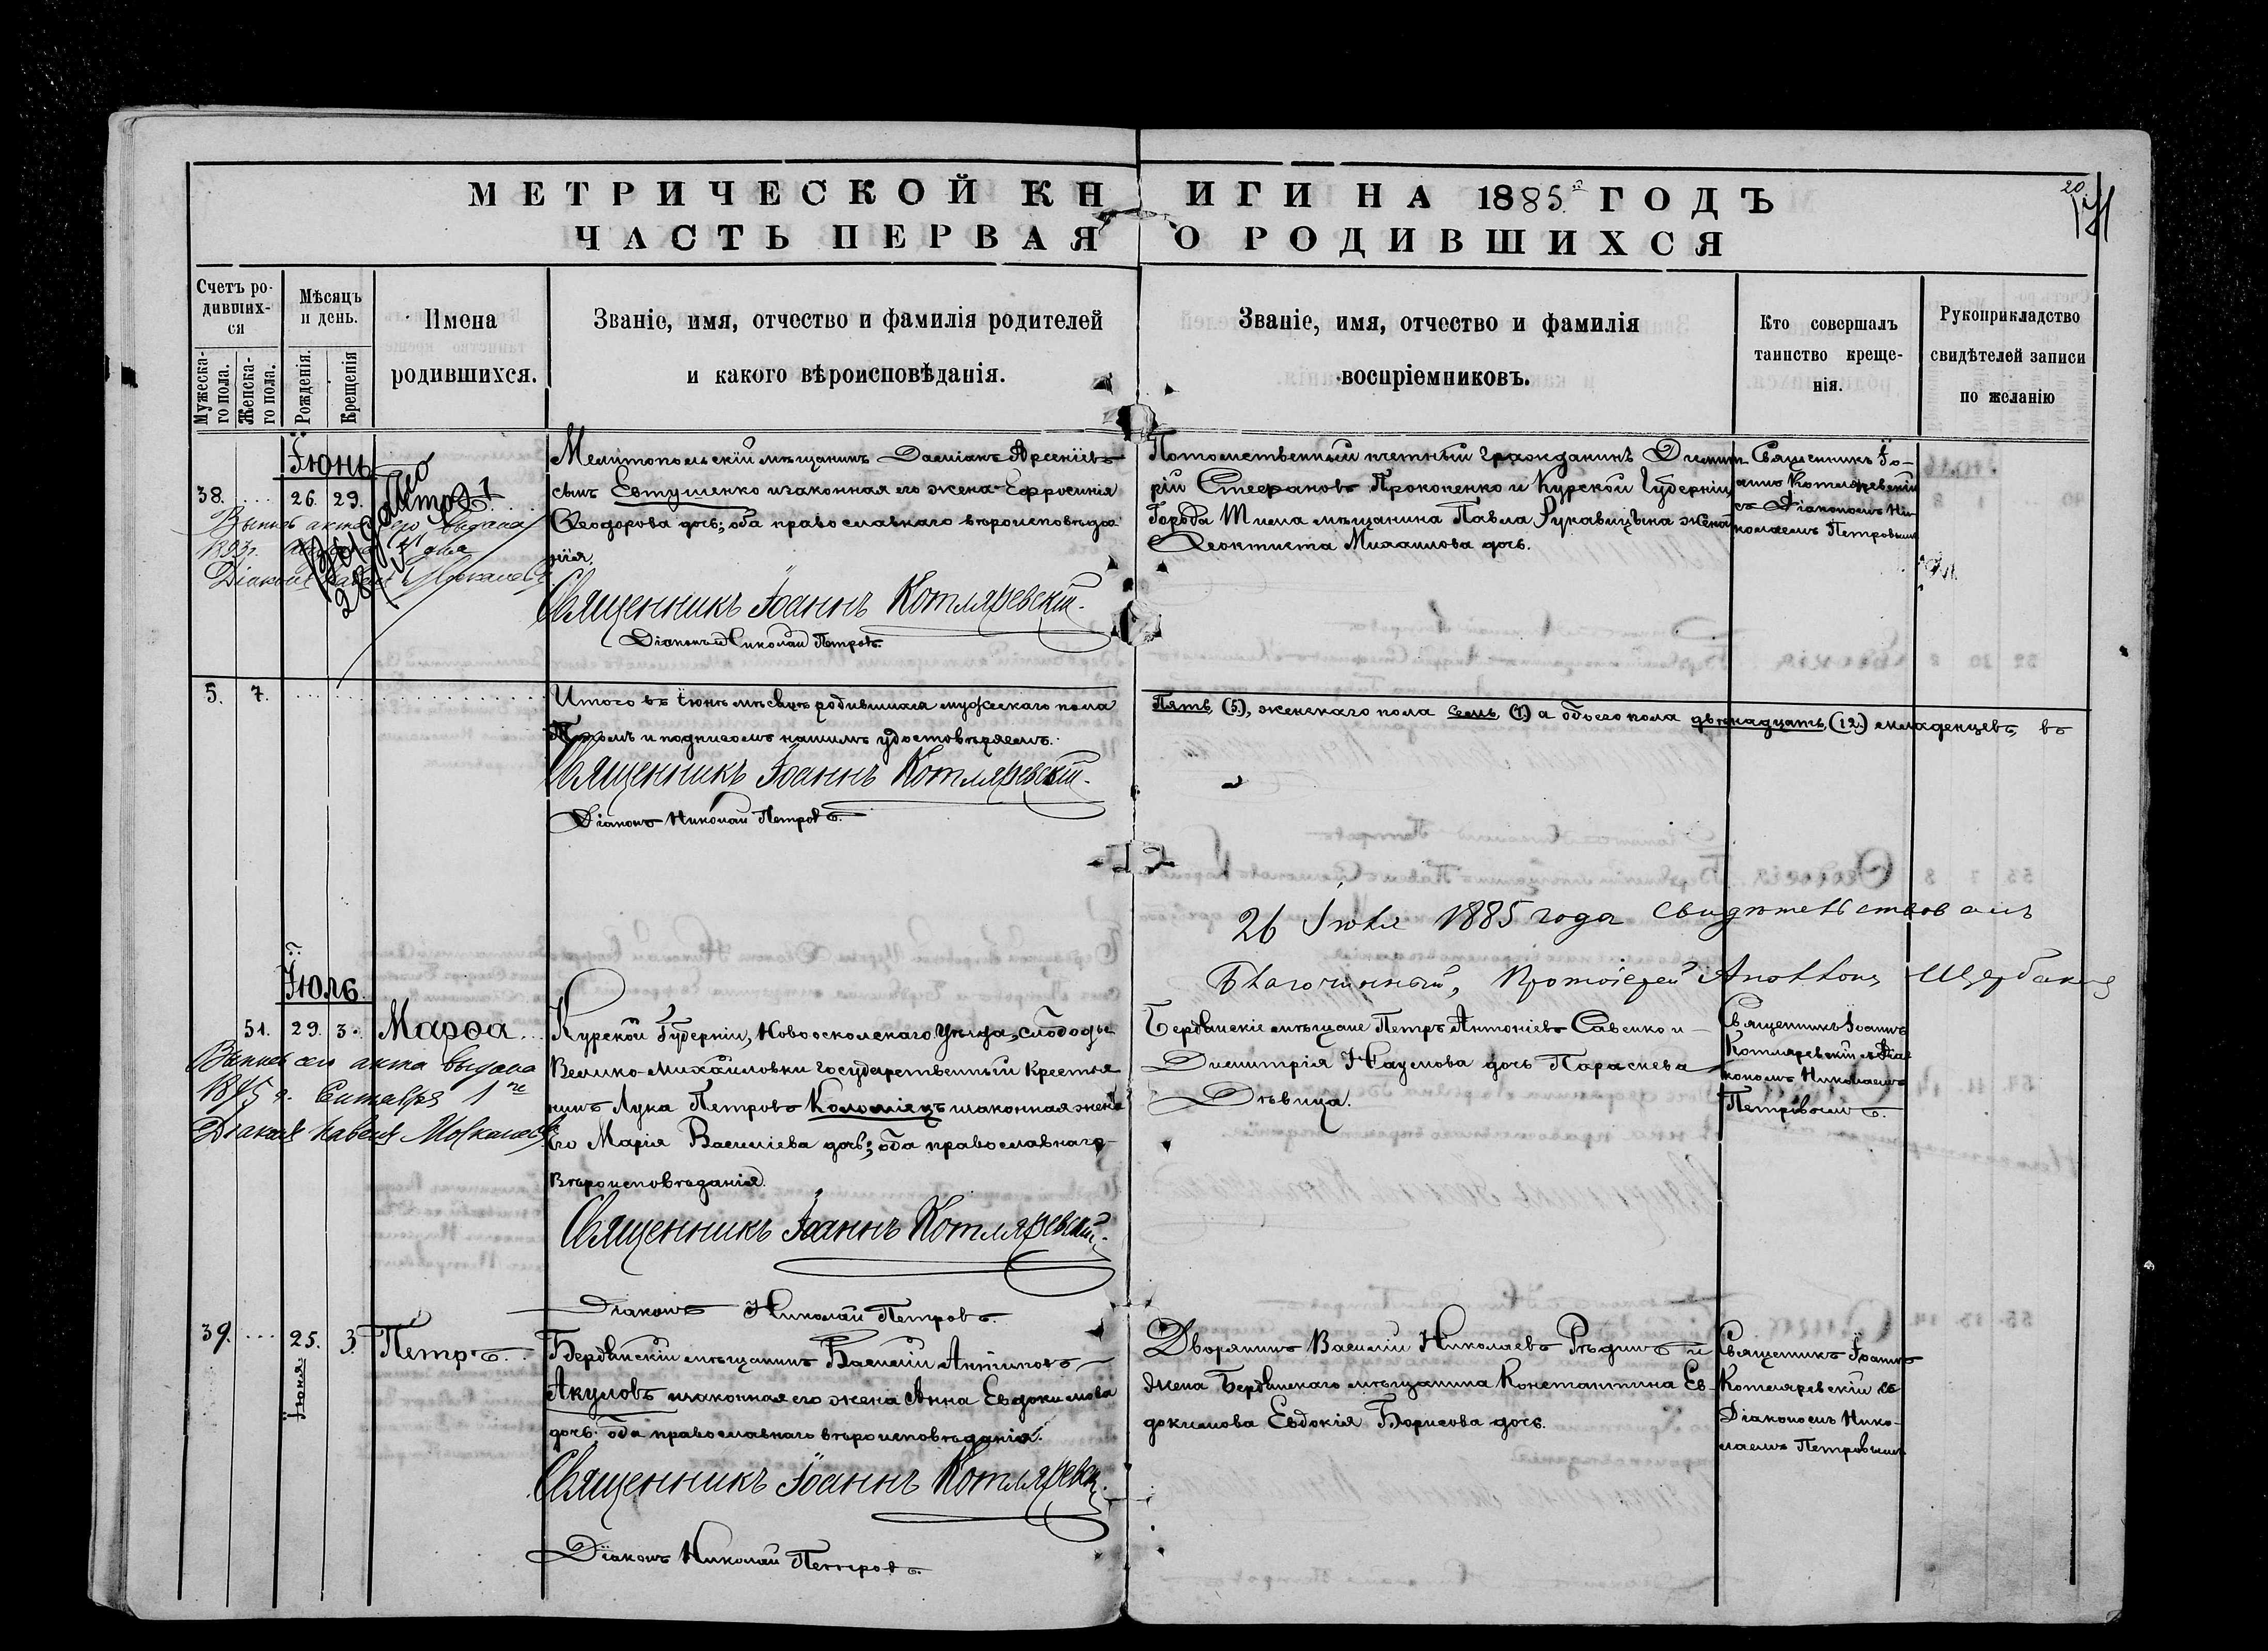 МЕТРИЧЕСКОЙ КНИГИ НА 1885й ГОДЪ
ЧАСТЬ ПЕРВАЯ О РОДИВШИХСЯ
20
Счетъ ро-
дивших-
ся
Мужеска-
го пола.
Женска-
го пола.
Мѣсяцъ
и день.
Рожденія.
Крещенія
Имена
родившихся.
Званіе, имя, отчество и фамилія родителей
и какого вѣроисповѣданія.
Званіе, имя, отчество и фамилія
воспріемниковъ.
Кто совершалъ
таинство креще-
нія.
Рукоприкладство
свидѣтелей записи
по желанію
Іюнь
38. 26. 29. Петръ
Мелитопольскій мѣщанинъ Даміанъ Арсеніевъ
сынъ Евтушенко изаконная его жена Ефросинія
Ѳеодорова дочь; оба православнаго вѣроисповѣда
нія.
Священникъ Іоаннъ Котляревскій.
Діаконъ Николай Петровъ.
Потомственный почетный гражданинъ Димит
рій Стефановъ Прокопенко и Курской Губерніи
Города Тима мѣщанина Павла Рукавицына жена
Ѳеоктиста Михаилова дочь.
Священникъ Іо-
аннъ Котляревскій
съ Діакономъ Ни-
колаемъ Петровымъ
Выпись акта сего выдана
1893г.
Діаконъ Павелъ
5. 7.
Итого въ іюнѣ мѣсяцѣ родившихся мужескаго пола
Пять (5.), женскаго пола семь (7.) а обоего пола двѣнадцать (12.) младенцевъ, въ
чомъ и подписомъ нашимъ удостовѣряемъ.
Священникъ Іоаннъ Котляревскій.
Діаконъ Николай Петровъ.
26 Іюля 1885 года свидѣтельствовалъ
Благочинный, Протоіерей Аполлонъ Щербаковъ
Іюль
51. 29. 3. Марѳа
Курской Губерніи, Новооскольскаго Уѣзда, слободы
Велико-Михайловки государственный крестья
нинъ Лука Петровъ Коломіецъ изаконная жена
его Марія Василіева дочь; оба православнаго
вѣроисповѣданія.
Священникъ Іоаннъ Котляревскій.
Діаконъ Николай Петровъ.
Бердянскіе мѣщане Петръ Антоніевъ Савенко и
Димитрія Наумова дочь Параскева
Дѣвица.
Священникъ Іоаннъ
Котляревскій съ Діа
кономъ Николаемъ
Петровымъ.
Выпись сего акта выдана
1895 г. Сентября 1го
Діаконъ Павелъ
39. 25. Іюня 3. Петръ.
Бердянскій мѣщанинъ Василій Антиповъ
Акуловъ изаконная его жена Анна Евдокимова
дочь; оба православнаго вѣроисповѣданія.
Священникъ Іоаннъ Котляревск.
Діаконъ Николай Петровъ.
Дворянинъ Василій Николаевъ Рѣдинъ и
жена Бердянскаго мѣщанина Константина Ев-
докимова Евдокія Борисова дочь.
Священникъ Іоаннъ
Котляревскій съ
Діакономъ Нико-
лаемъ Петровымъ